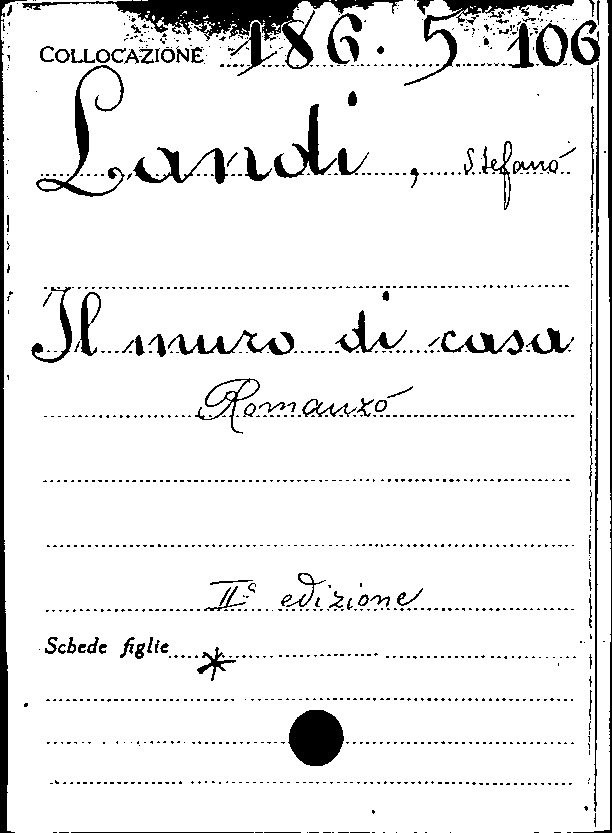 COLLOCAZIONE 186. 5. 106
Landi, Stefano
Il muro di casa
Romanzo
IIª edizione
Schede figlie *